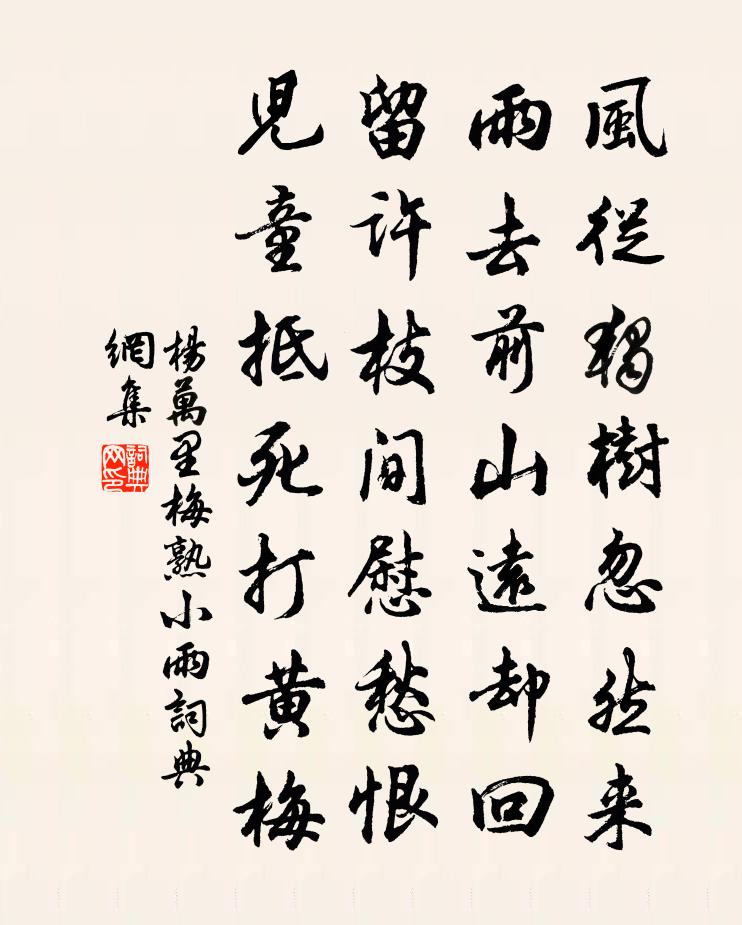 風從獨樹忽然来
雨去前山遠却回
留許枝間慰愁恨
児童抵死打黄梅
楊萬里梅熟小雨詞典
網集
詞典
网印